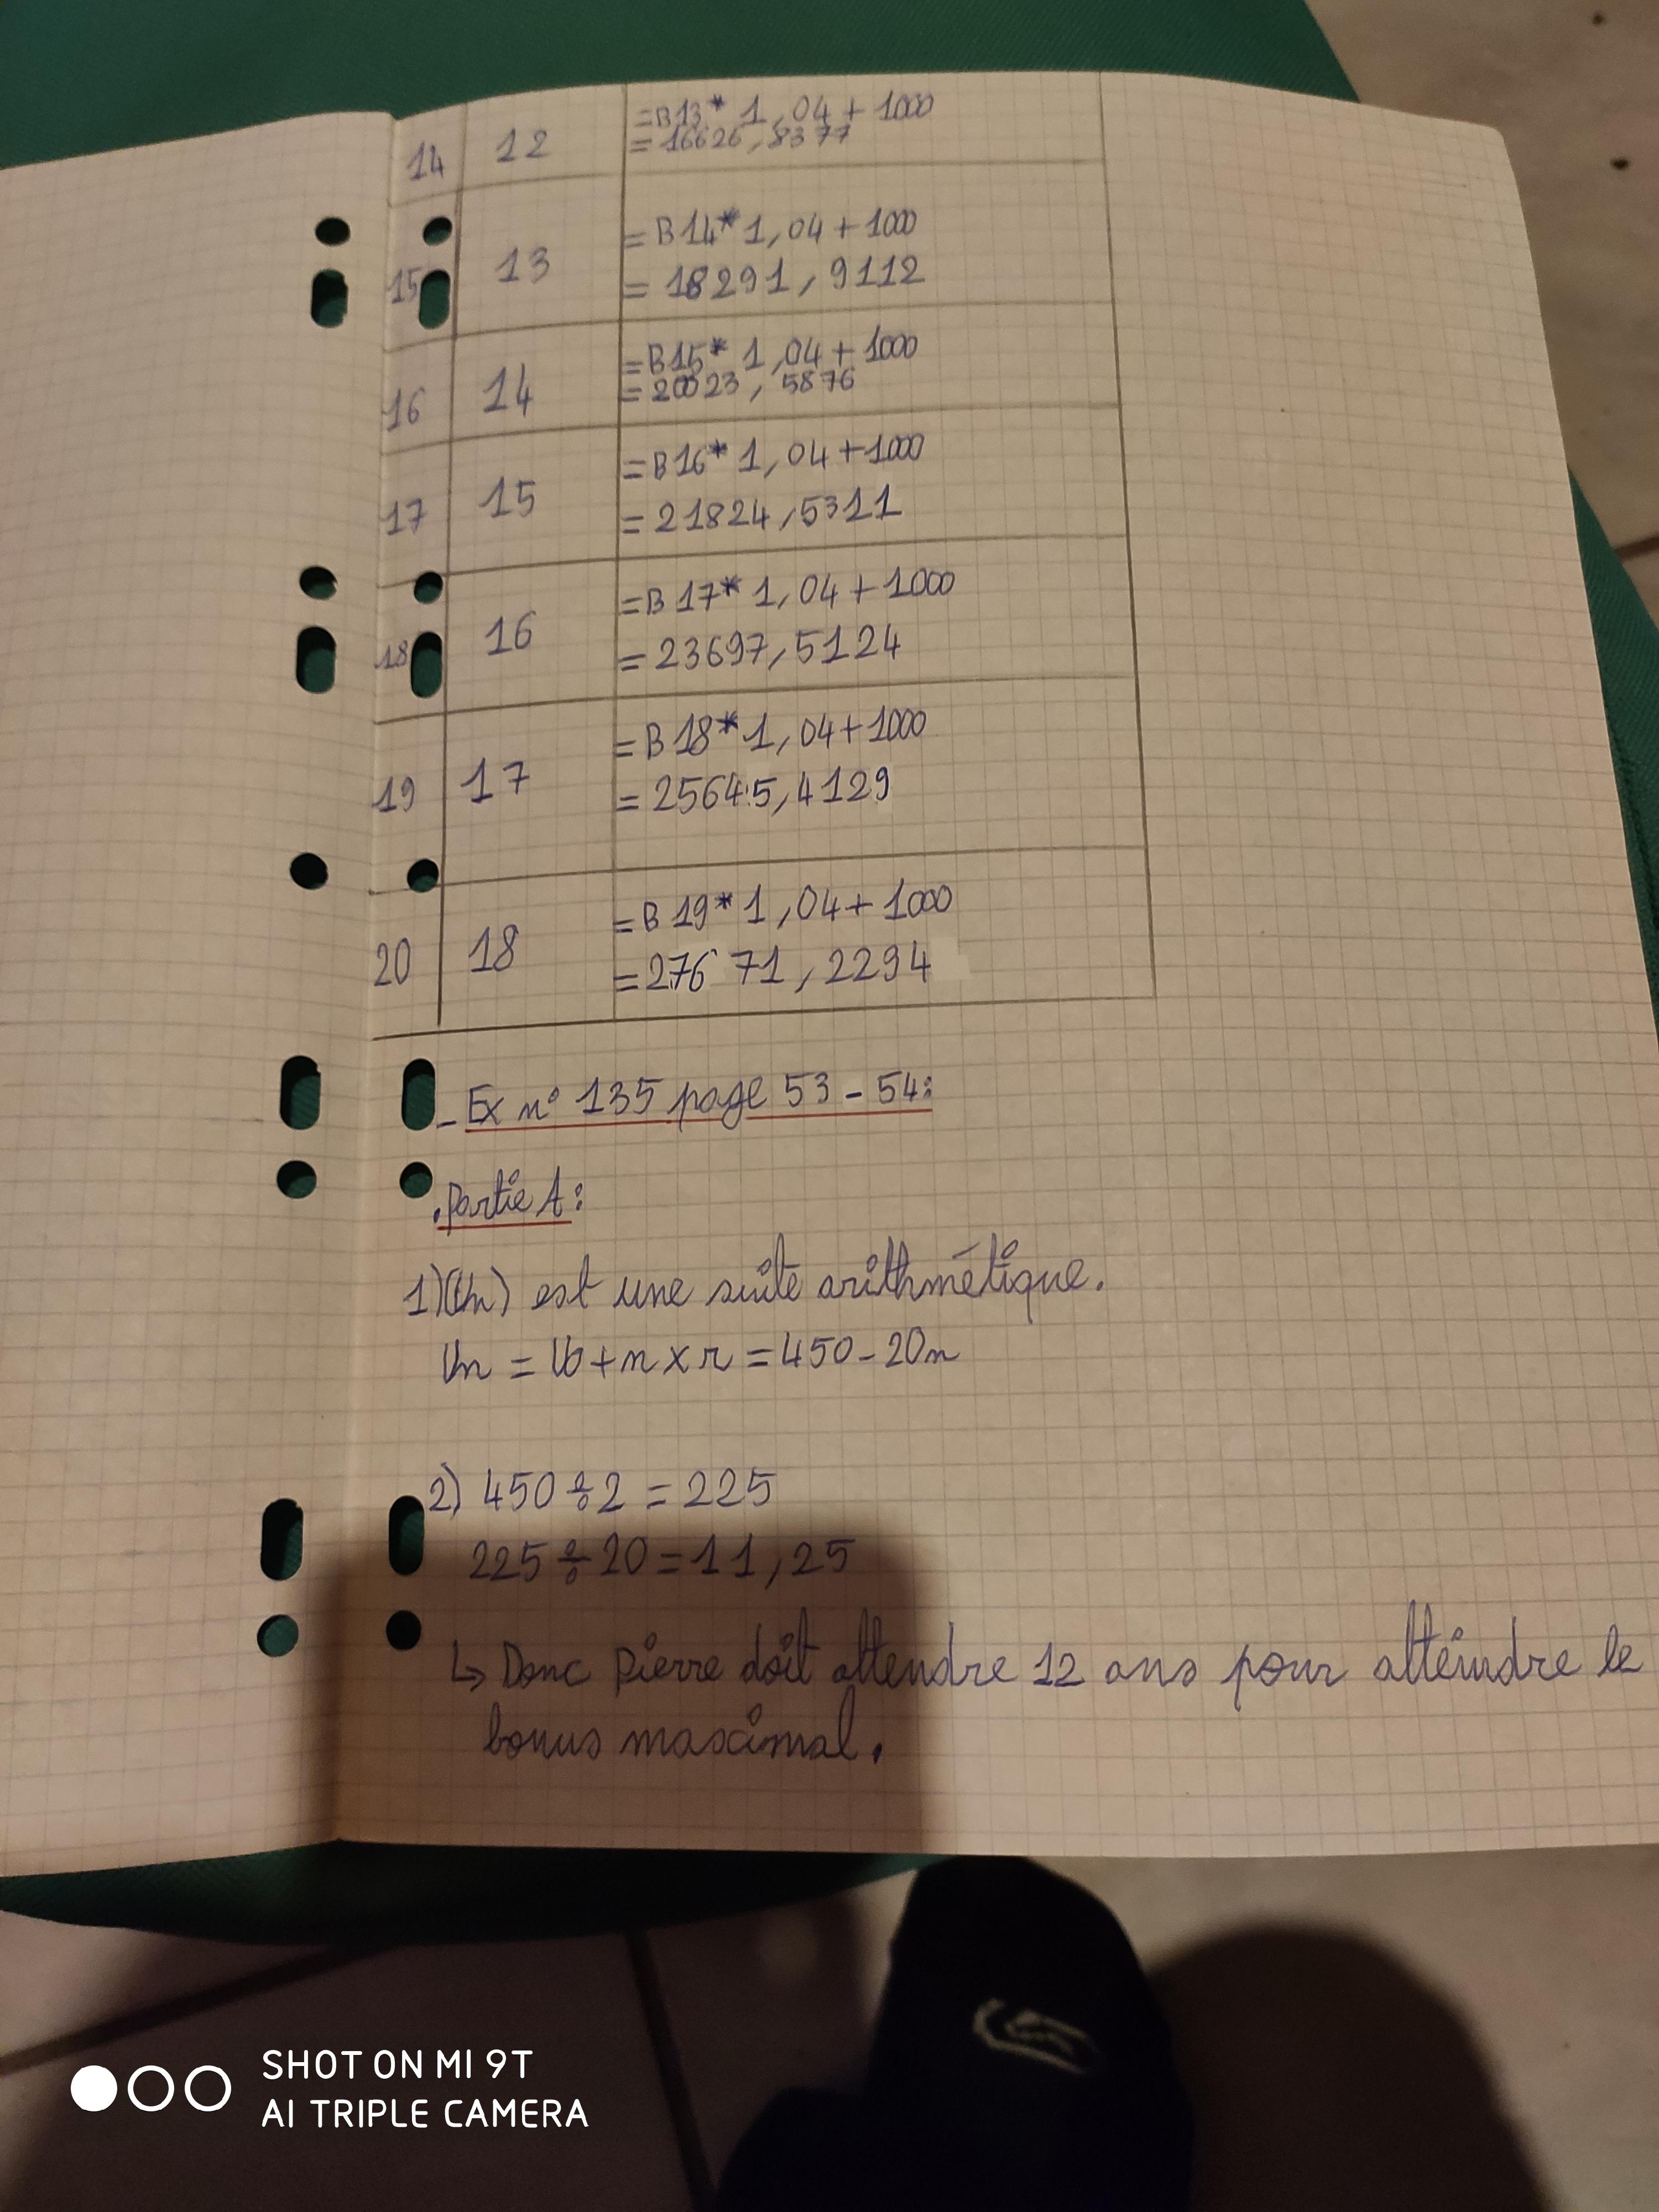 14 12 =B13* 1,04+1000
=16626,8377
15 13 =B14*1,04+1000
=18291,9112
16 14 =B15* 1,04+1000
=20023,5876
17 15 =B16* 1,04+1000
=21824,5311
18 16 =B17* 1,04+1000
=23697,5124
19 17 =B18*1,04+1000
=25645,4129
20 18 =B19*1,04+1000
=27671,2294
- Ex n° 135 page 53-54:
.Partie A:
1)(Un) est une suite arithmétique.
Un = U0+n×r=450-20n
2) 450÷2=225
225÷20=11,25
↳ Donc Pierre doit attendre 12 ans pour atteindre le
bonus maximal.
SHOT ON MI 9T
AI TRIPLE CAMERA